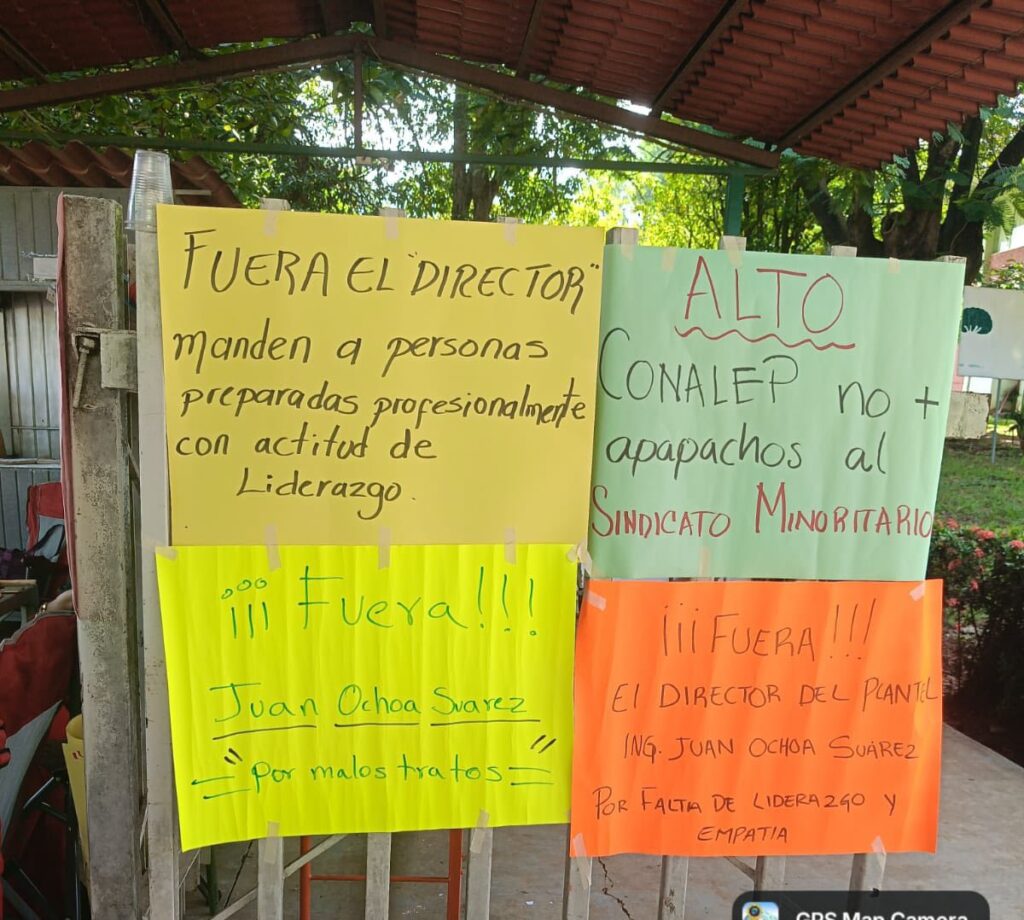 FUERA EL "DIRECTOR"
Manden a personas
preparadas profesionalmente
con actitud de
Liderazgo.
ALTO
CONALEP no +
apapachos al
SINDICATO MINORITARIO
¡¡¡ Fuera!!!
Juan Ochoa Suarez
"Por malos tratos"
¡¡¡FUERA!!!
El DIRECTOR DEL PLANTEL
ING. JUAN OCHOA SUÁREZ
POR FALTA DE LIDERAZGO Y
EMPATIA
GPS Map Camera